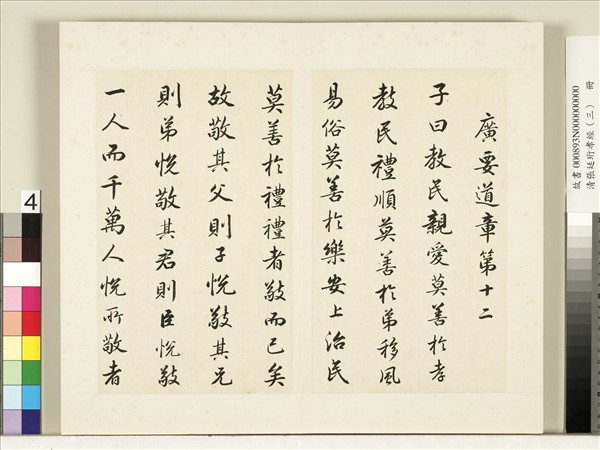 廣要道章第十二
子曰教民親愛莫善於孝
教民禮順莫善於弟移風
易俗莫善於樂安上治民
莫善於禮禮者敬而已矣
故敬其父則子悅敬其兄
則弟悅敬其君則臣悅敬
一人而千萬人悅所敬者
故書000893N000000000
清張廷珩孝經(三) 冊
4